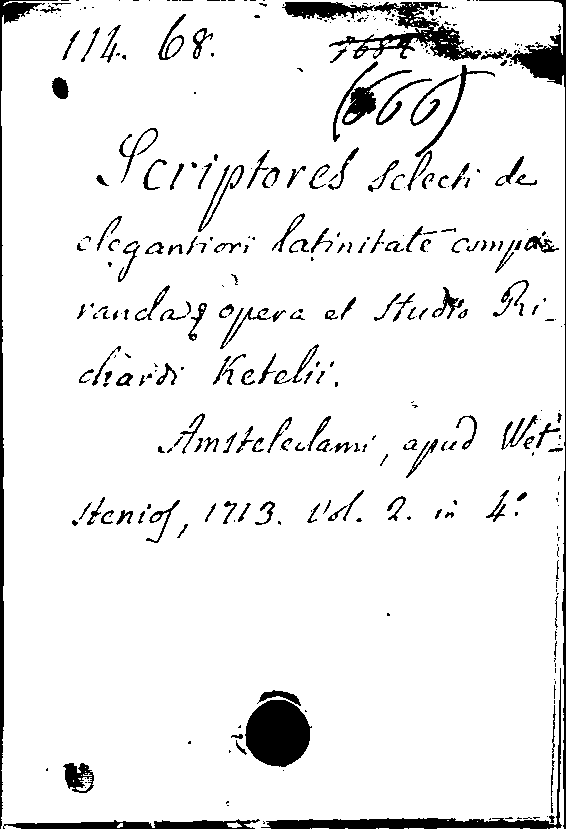 114. 68. 1684
(666)
Scriptores selecti de
elegantiori latinitate compa-
randa, opera et studio Ri-
chardi Ketelii.
Amsteledami, apud Wet-
stenios, 1713. Vol. 2. in 4.º